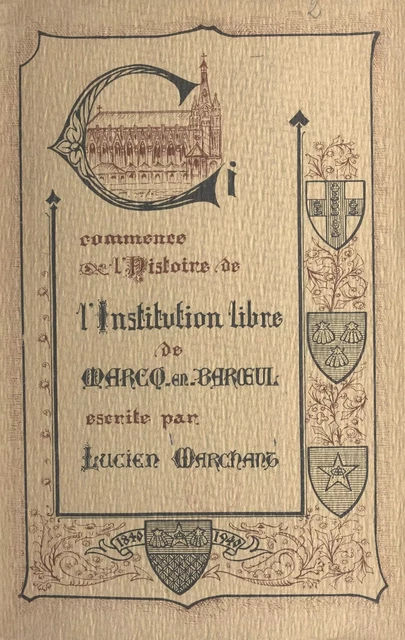 Ci
commence
l'Histoire de
l'Institution libre
de
MARCQ-en-BARŒUL
escrite par
Lucien Marchant
1840 1940